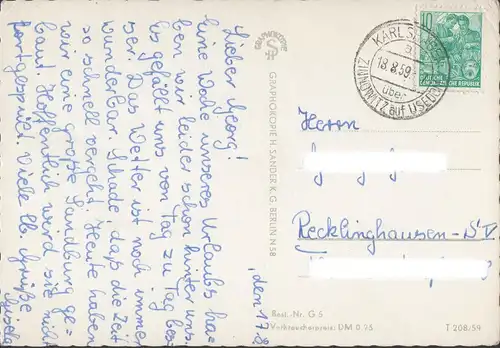 Lieber Georg!
Eine Woche unseres Urlaubs ha-
ben wir leider schon hinter uns.
Es gefällt uns von Tag zu Tag bes-
ser. Das Wetter ist noch immer
wunderbar. Schade, daß die Zeit
so schnell vergeht. Heute haben
wir eine große Sandburg ge-
baut. Hoffentlich wird sie nicht
fortgespült. Viele lb. Grüße
Gisela
den 17.8.
GRAPHOKOPIE
GRAPHOKOPIE H. SANDER K. G. BERLIN N 58
10
DEUTSCHE DEMOKRATISCHE REPUBLIK
KARLSHAGEN
18.8.59
über
ZINNOWITZ auf USEDOM
Herrn
Recklinghausen-
Best.-Nr. G 5
Verbraucherpreis: DM 0.25
T 208/59